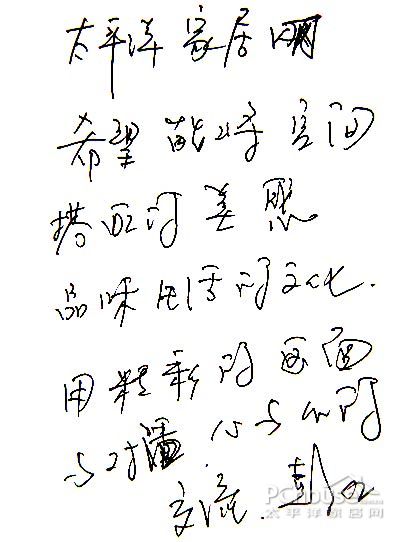 太平洋家居网
希望能将空间
搭配的美感
品味生活的文化.
用精彩的画面
与对 心与心的
交流. 彭
PChouse
太平洋家居网